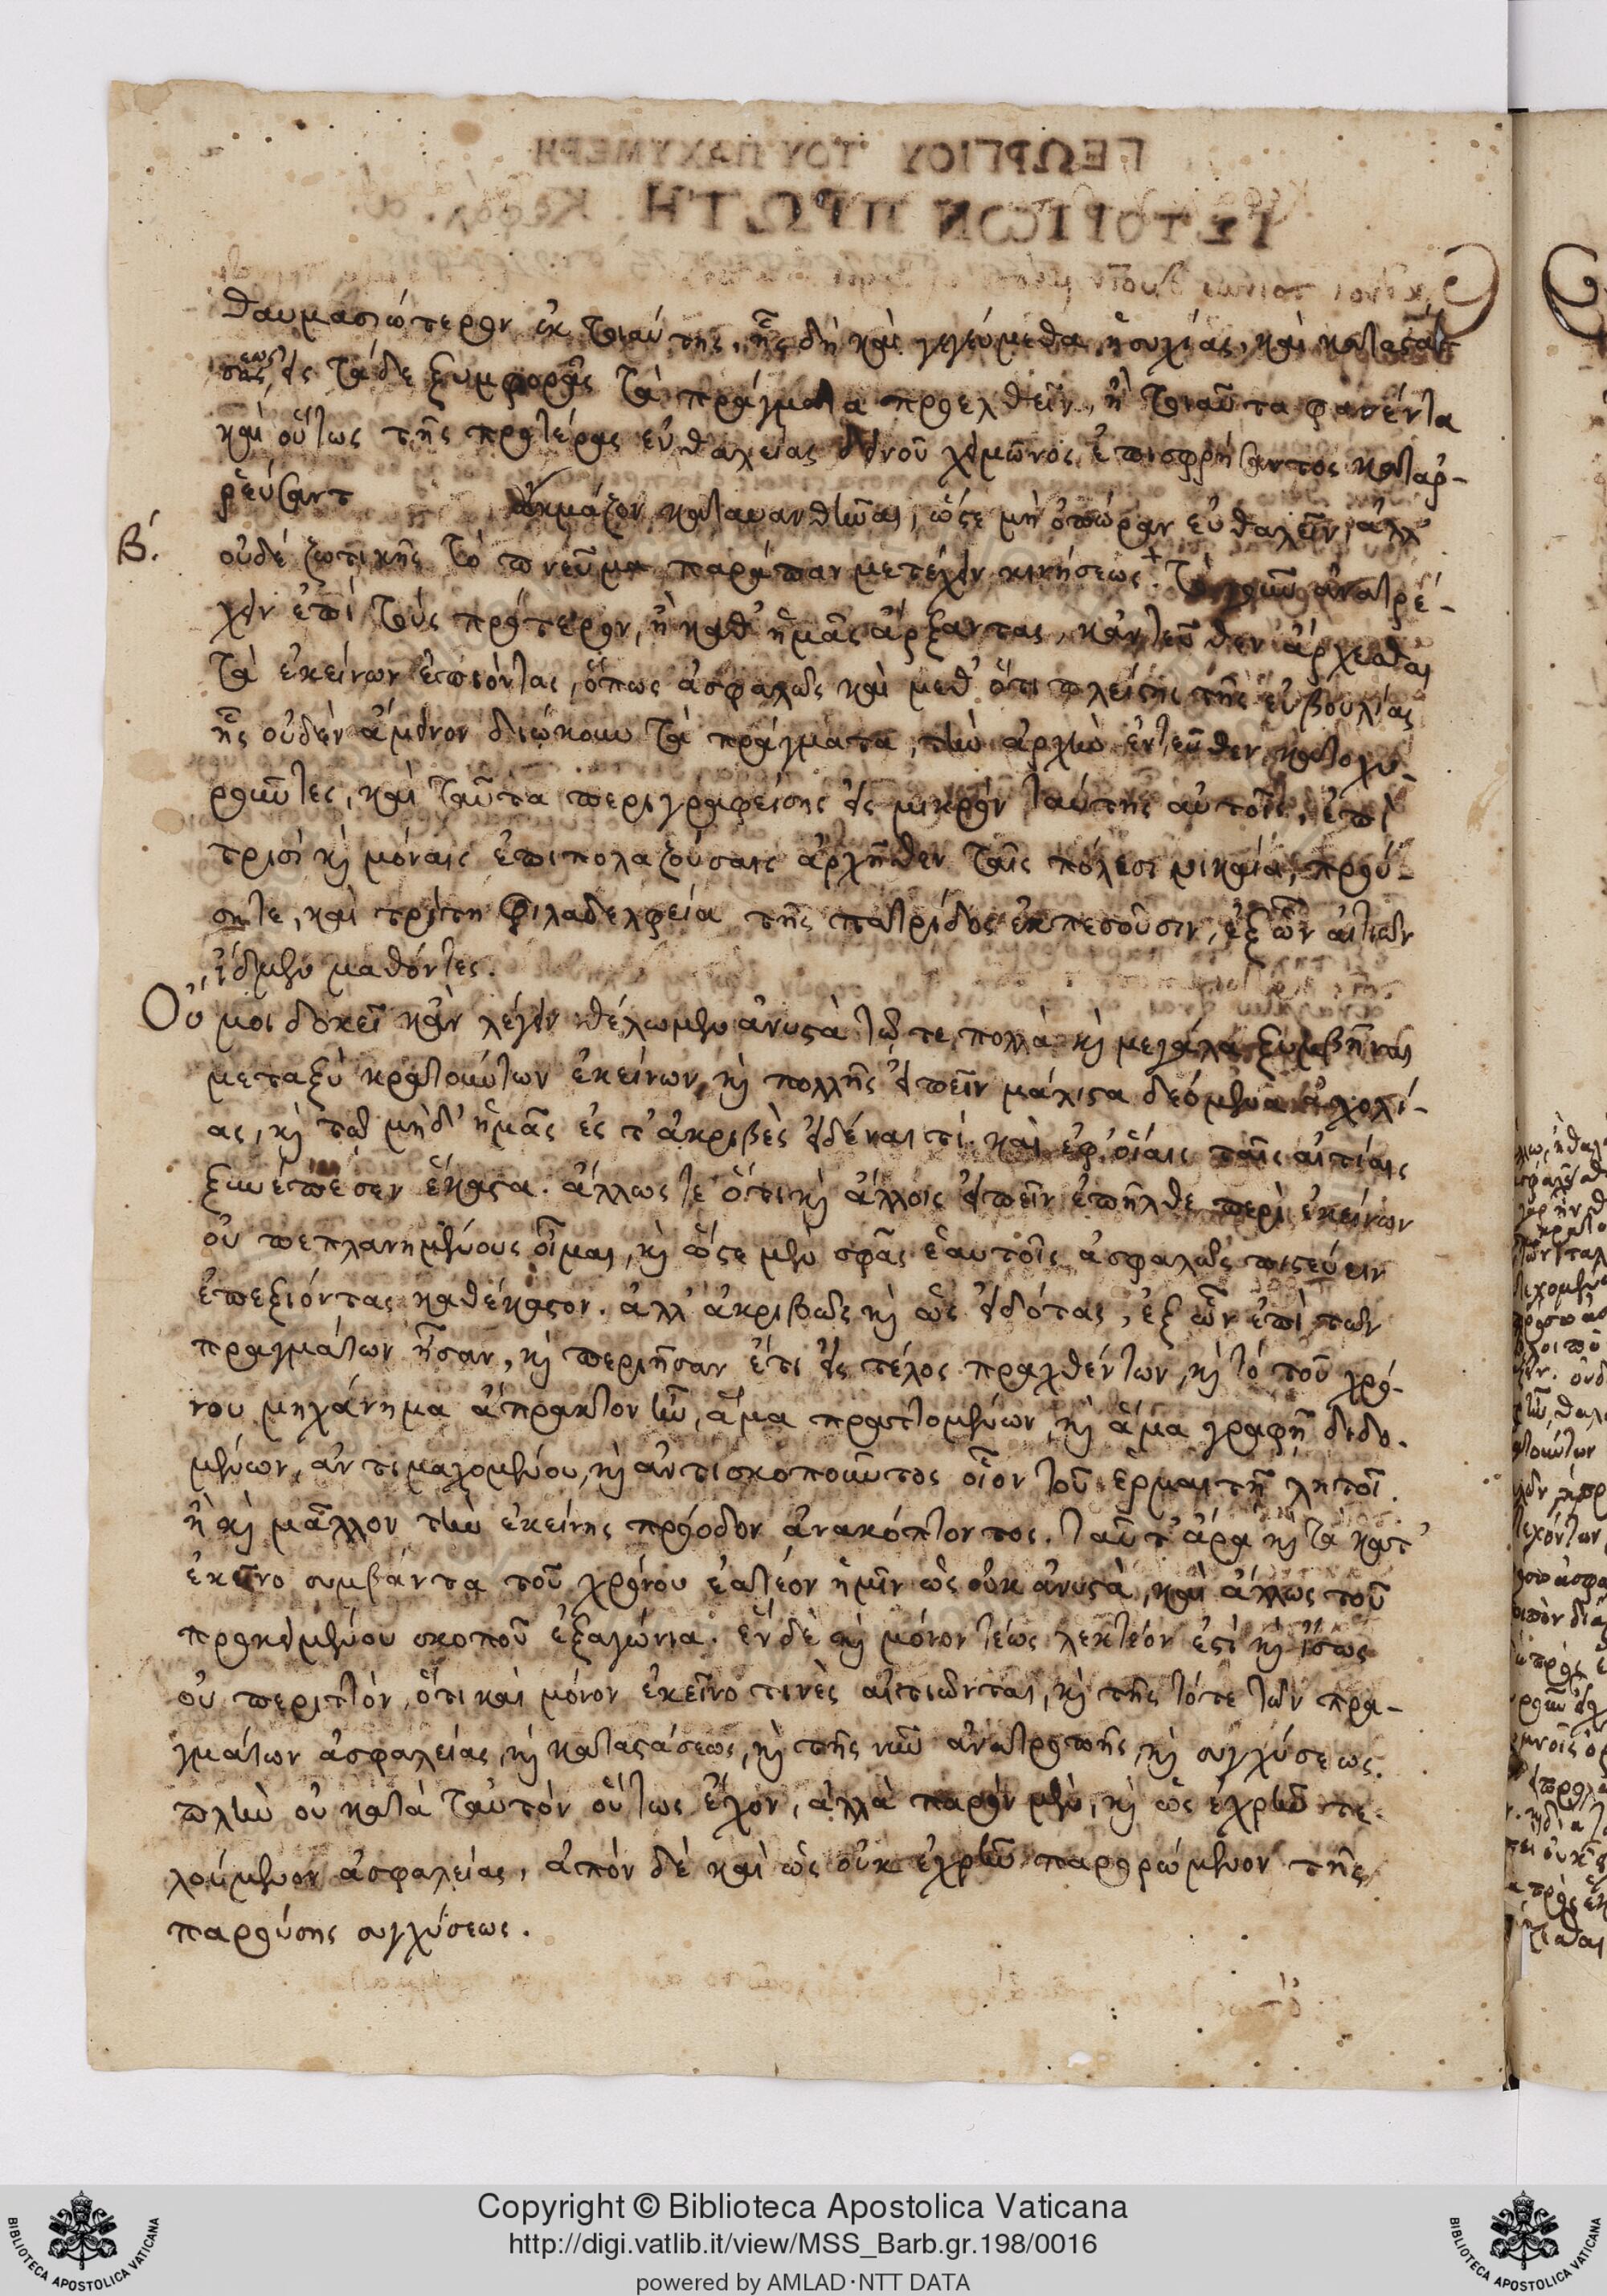 θαυμασιώτερον ἐκ τοιαύτης, ἧς δὴ καὶ γεγεύμεθα, ἡσυχίας, καὶ καταστά
σεως, εἰς τάδε ξυμφορᾶς τὰ πράγματα προελθεῖν, ἢ τοιαῦτα φανέντα
καὶ οὕτως τῆς προτέρας εὐθαλείας δεινοῦ χειμῶνος ἐπισφρήσαντος καταρ-
ρεύσαντ ἀκμάζον καταυανθῶναι, ὥστε μὴ ὀπώραν εὐθαλεῖν, ἀλλ'
Β΄.
οὐδέ ζωτικῆς τὸ πνεῦμα παράπαν μετέχειν κινήσεως. ἀνατρέ-
χειν ἐπὶ τοὺς πρότερον, ἢ καθ' ἡμᾶς ἄρξαντας, κἀντεῦθεν ἄρχεσθαι
τὰ ἐκείνων ἐπιόντας, ὅπως ἀσφαλῶς καὶ μεθ' ὅτι πλείστης τῆς εὐβουλίας
ἧς οὐδὲν ἄμεινον διώκουν τὰ πράγματα, τὴν ἀρχὴν ἐντεῦθεν κατοχυ-
ροῦντες, καὶ ταῦτα περιγραφείσης εἰς μικρὸν ταύτης αὐτοῖς, ἐπὶ
τρισὶ κ̀ μόναις ἐπιπολαζούσαις ἀρχῆθεν ταῖς πόλεσι νικαίᾳ, πρού-
σῃ τε, καὶ τρίτῃ Φιλαδελφείᾳ τῆς πατρίδος ἐκπεσοῦσιν, ἐξ ὧν αἰτιῶν
εἴδομεν μαθόντες.
Οὔ μοι δοκεῖ κἂν λέγειν θέλωμεν ἀνυστὰ τῷ τε πολλὰ κ̀ μεγάλα ξυμβῆναι
μεταξὺ κρατούντων ἐκείνων, κ̀ πολλῆς εἰπεῖν μάλιστα δεόμενα ἀσχολί-
ας, κ̀ τῷ μὴδ' ἡμᾶς ἐς τ' ἀκριβὲς εἰδέναι τί καὶ ἐφ' οἵαις ταῖς αἰτίαις
ξυνέπεσεν ἕκαστα. ἄλλως τε ὅτι κ̀ ἄλλοις εἰπεῖν ἐπῆλθε περὶ ἐκείνων
οὐ πεπλανημένους οἶμαι, κ̀ ὥστε μὲν σφᾶς ἑαυτοῖς ἀσφαλῶς πιστεύειν
ἐπεξιόντας καθέκαστον. ἀλλ' ἀκριβῶς κ̀ ὡς εἰδότας, ἐξ ὧν ἐπὶ τῶν
πραγμάτων ἦσαν, κ̀ περιῆσαν ἔτι εἰς τέλος πραχθέντων, κ̀ τὸ τοῦ χρό-
νου μηχάνημα ἄπρακτον ἦν, ἅμα πραττομένων, κ̀ ἅμα γραφῇ διδο-
μένων, ἀντιμαχομένου, κ̀ ἀντισκοποῦντος οἷον τοῦ ἑρμαι τῇ λητοῖ.
ἢ κ̀ μᾶλλον τὴν ἐκείνης πρόοδον ἀνακόπτοντος. ταῦτ' ἄρα κ̀ τὰ κατ'
ἐκεῖνο συμβάντα τοῦ χρόνου ἐατέον ἡμῖν ὡς οὐκ ἀνυστὰ, καὶ ἄλλως τοῦ
προκειμένου σκοποῦ ἐξαγώνια. ἓν δὲ κ̀ μόνον τέως λεκτέον ἐστὶ κ̀ ἴσως
οὐ περιττόν, ὅτι καὶ μόνον ἐκεῖνο τινὲς αἰτιῶνται, κ̀ τῆς τότε τῶν πρα-
γμάτων ἀσφαλείας, κ̀ καταστάσεως, κ̀ τῆς νῦν ἀνατροπῆς, κ̀ συγχύσεως.
πλὴν οὐ κατὰ ταὐτὸν οὕτως ἔχον, ἀλλὰ παρὸν μὲν, κ̀ ὡς ἐχρῆν τε-
λούμενον ἀσφαλείας, ἀπὸν δὲ καὶ ὡς οὐκ ἐχρῆν παρορώμενον τῆς
παρούσης συγχύσεως.
Copyright © Biblioteca Apostolica Vaticana
http://digi.vatlib.it/view/MSS_Barb.gr.198/0016
powered by AMLAD·NTT DATA
BIBLIOTECA APOSTOLICA VATICANA
BIBLIOTECA APOSTOLICA VATICANA